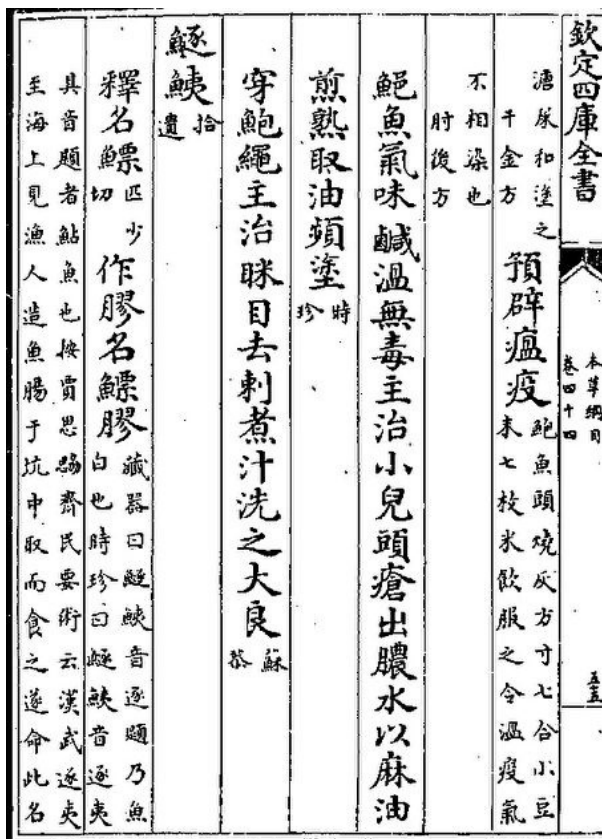 欽定四庫全書
本草綱目
卷四十四
五五
溏尿和塗之
千金方
預辟瘟疫
鮑魚頭燒灰方寸七合小豆
末七枚米飲服之令瘟疫氣
不相染也
肘後方
鮑魚氣味鹹溫無毒主治小兒頭瘡出膿水以麻油
煎熟取油頻塗
時
珍
穿鮑繩主治眯目去刺煮汁洗之大良
蘇
恭
鱁鮧
拾
遺
釋名鰾
匹少
切
作膠名鰾膠
藏器曰鱁鮧音逐題乃魚
白也時珍曰鱁鮧音逐夷
其音題者鮎魚也按賈思勰齊民要術云漢武逐夷
至海上見漁人造魚腸于坑中取而食之遂命此名